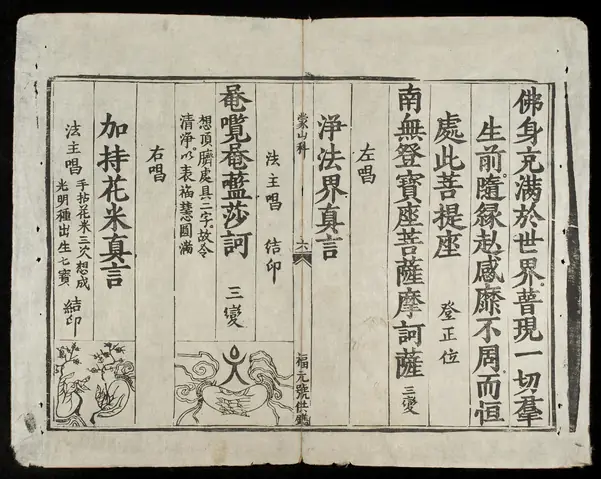 佛身充满於世界普現一切羣
生前隨緣赴感靡不周而恒
處此菩提座 登正位
南無登寶座菩薩摩訶薩 三變
左唱
淨法界真言
蒙山科 六 福元號供鐫
法主唱 結印
唵㘕唵藍莎訶 三變
想頂臍處具二字故令
清淨以表福慧圓滿
右唱
加持花米真言
法主唱 手拈花米三次想成
光明種出生七寶 結印